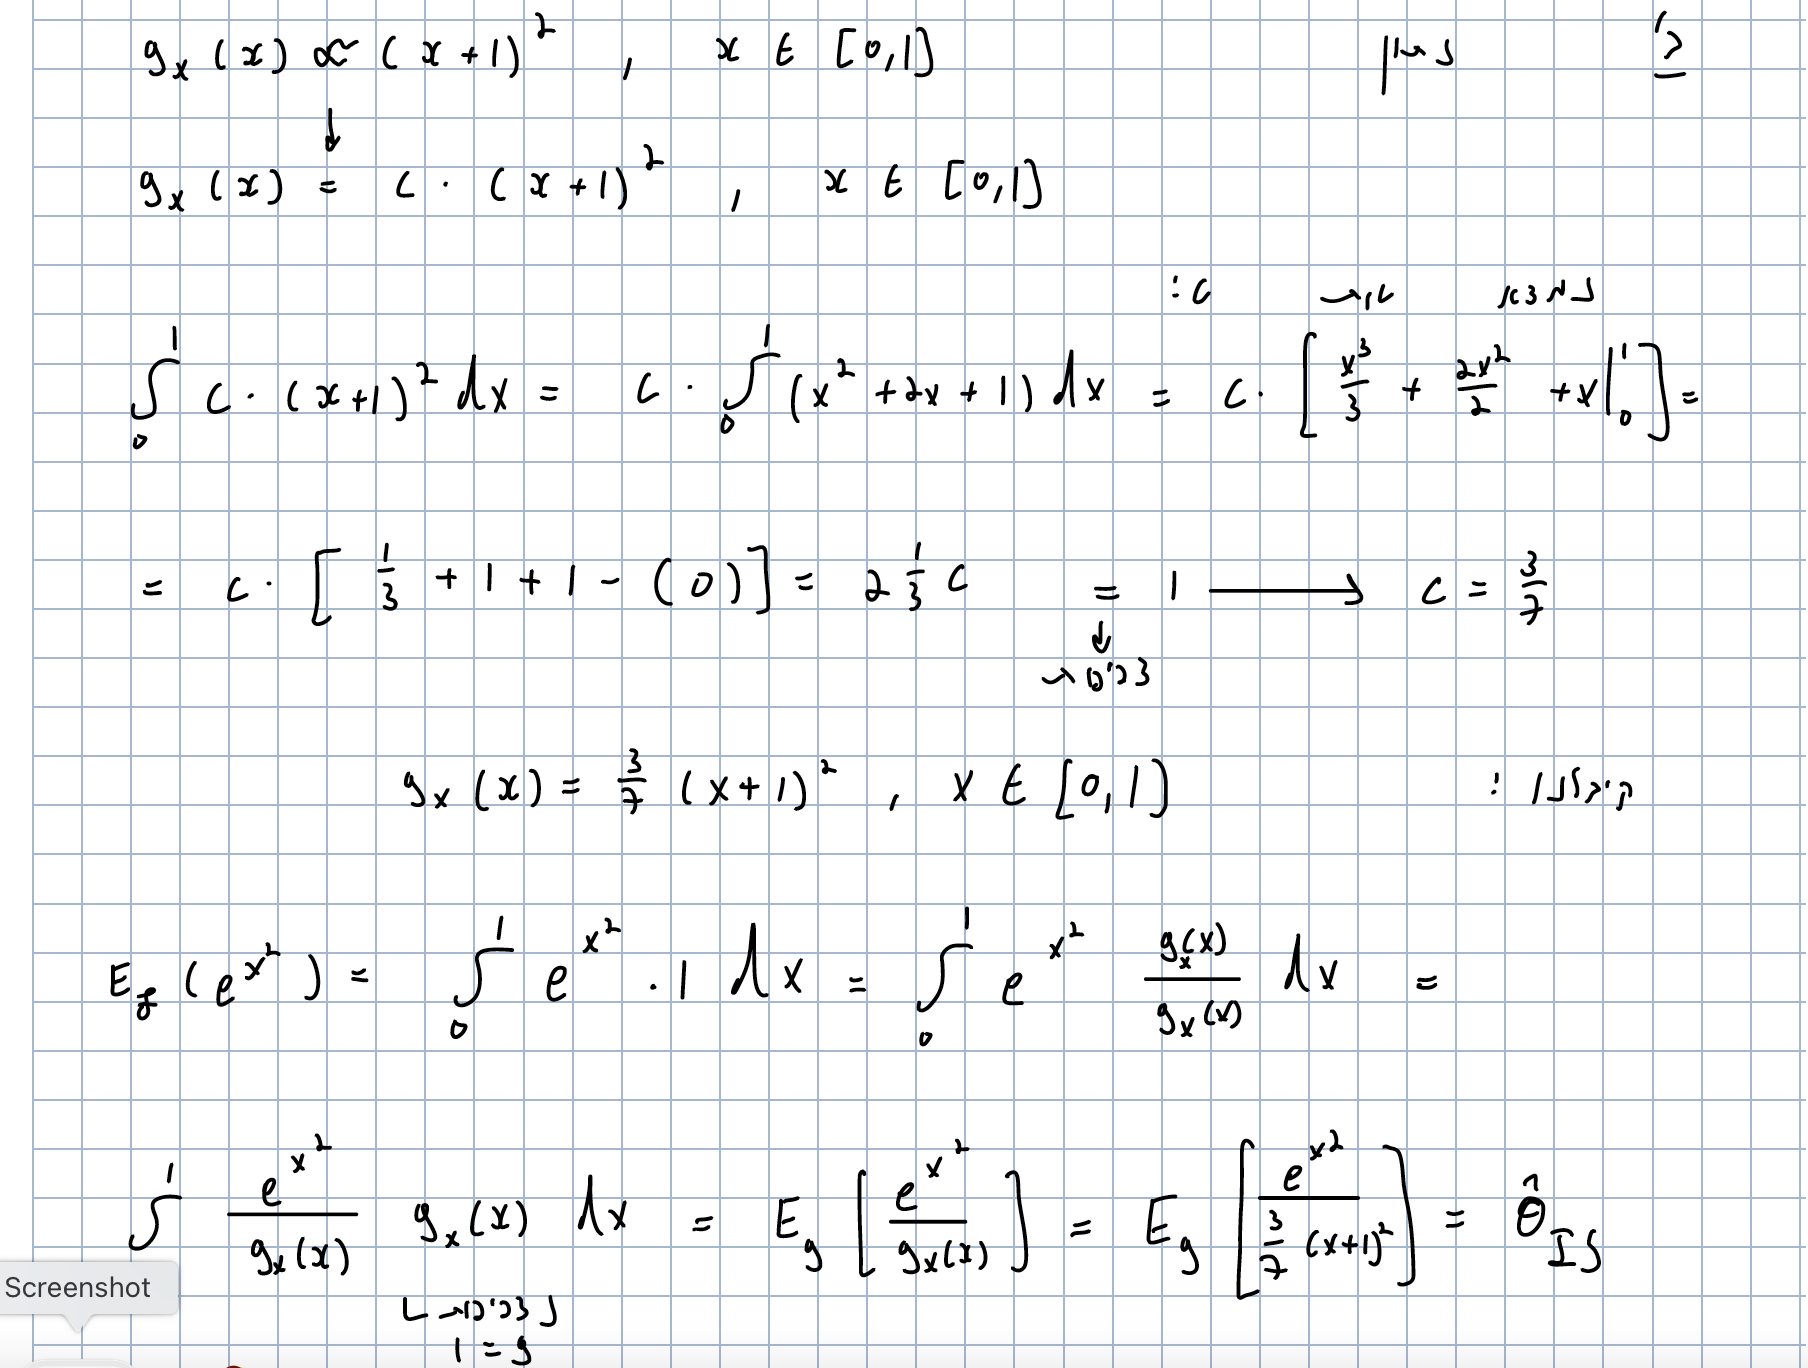 ג' נתון g_x(x) ∝ (x+1)^2 , x ∈ [0,1]
↓
g_x(x) = c · (x+1)^2 , x ∈ [0,1]
נמצא את c:
∫_0^1 c · (x+1)^2 dx = c · ∫_0^1 (x^2 + 2x + 1) dx = c · [x^3/3 + 2x^2/2 + x |_0^1] =
= c · [1/3 + 1 + 1 - (0)] = 2 1/3 c = 1 → c = 3/7
↓
צפיפות
קיבלנו: g_x(x) = 3/7 (x+1)^2 , x ∈ [0,1]
E_f(e^{x^2}) = ∫_0^1 e^{x^2} · 1 dx = ∫_0^1 e^{x^2} g_x(x)/g_x(x) dx =
∫^1 e^{x^2}/g_x(x) g_x(x) dx = E_g [e^{x^2}/g_x(x)] = E_g [e^{x^2}/(3/7 (x+1)^2)] = θ̂_{IS}
Screenshot